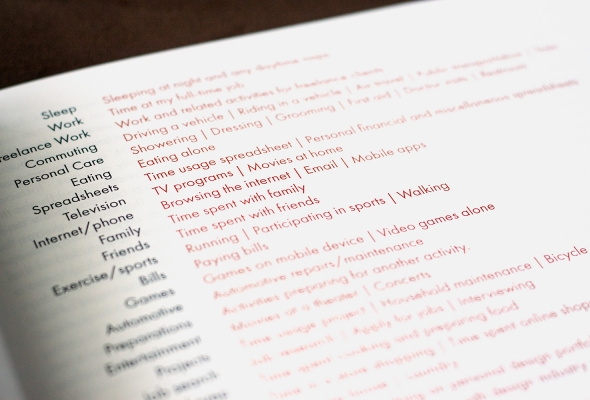 Sleep Sleeping at night and any daytime naps
Work Time at my full-time job
reelance Work Work and related activities for freelance clients
Commuting Driving a vehicle | Riding in a vehicle | Air travel | Public transportation |
Personal Care Showering | Dressing | Grooming | First aid | Doctor visits |
Eating Eating alone
Spreadsheets Time usage spreadsheet | Personal financial and miscellaneous spreadsheets
Television TV programs | Movies at home
Internet/phone Browsing the internet | Email | Mobile apps
Family Time spent with family
Friends Time spent with friends
Exercise/sports Running | Participating in sports | Walking
Bills Paying bills
Games Games on mobile device | Video games alone
Automotive Automotive repairs/maintenance
Preparations Activities preparing for another activity.
Entertainment Movies at a theater | Concerts
Projects Time usage project | Household maintenance | Bicycle
Job search Job research | Apply for jobs | Interviewing
Time spent cooking and preparing food
shopping | Time spent online shop
| Laundry
personal design portfo
design industry